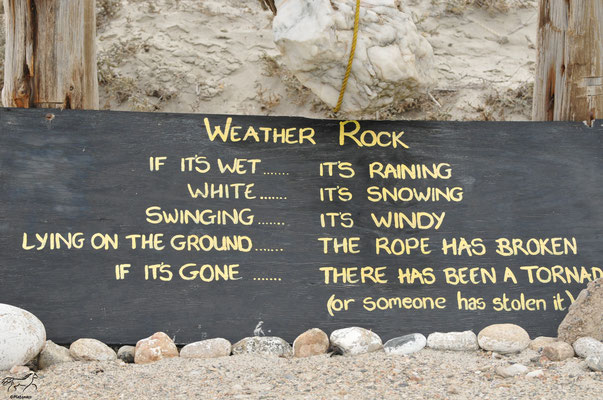 WEATHER ROCK
IF IT'S WET ....... IT'S RAINING
WHITE ....... IT'S SNOWING
SWINGING ....... IT'S WINDY
LYING ON THE GROUND ....... THE ROPE HAS BROKEN
IF IT'S GONE ....... THERE HAS BEEN A TORNAD
(or someone has stolen it)